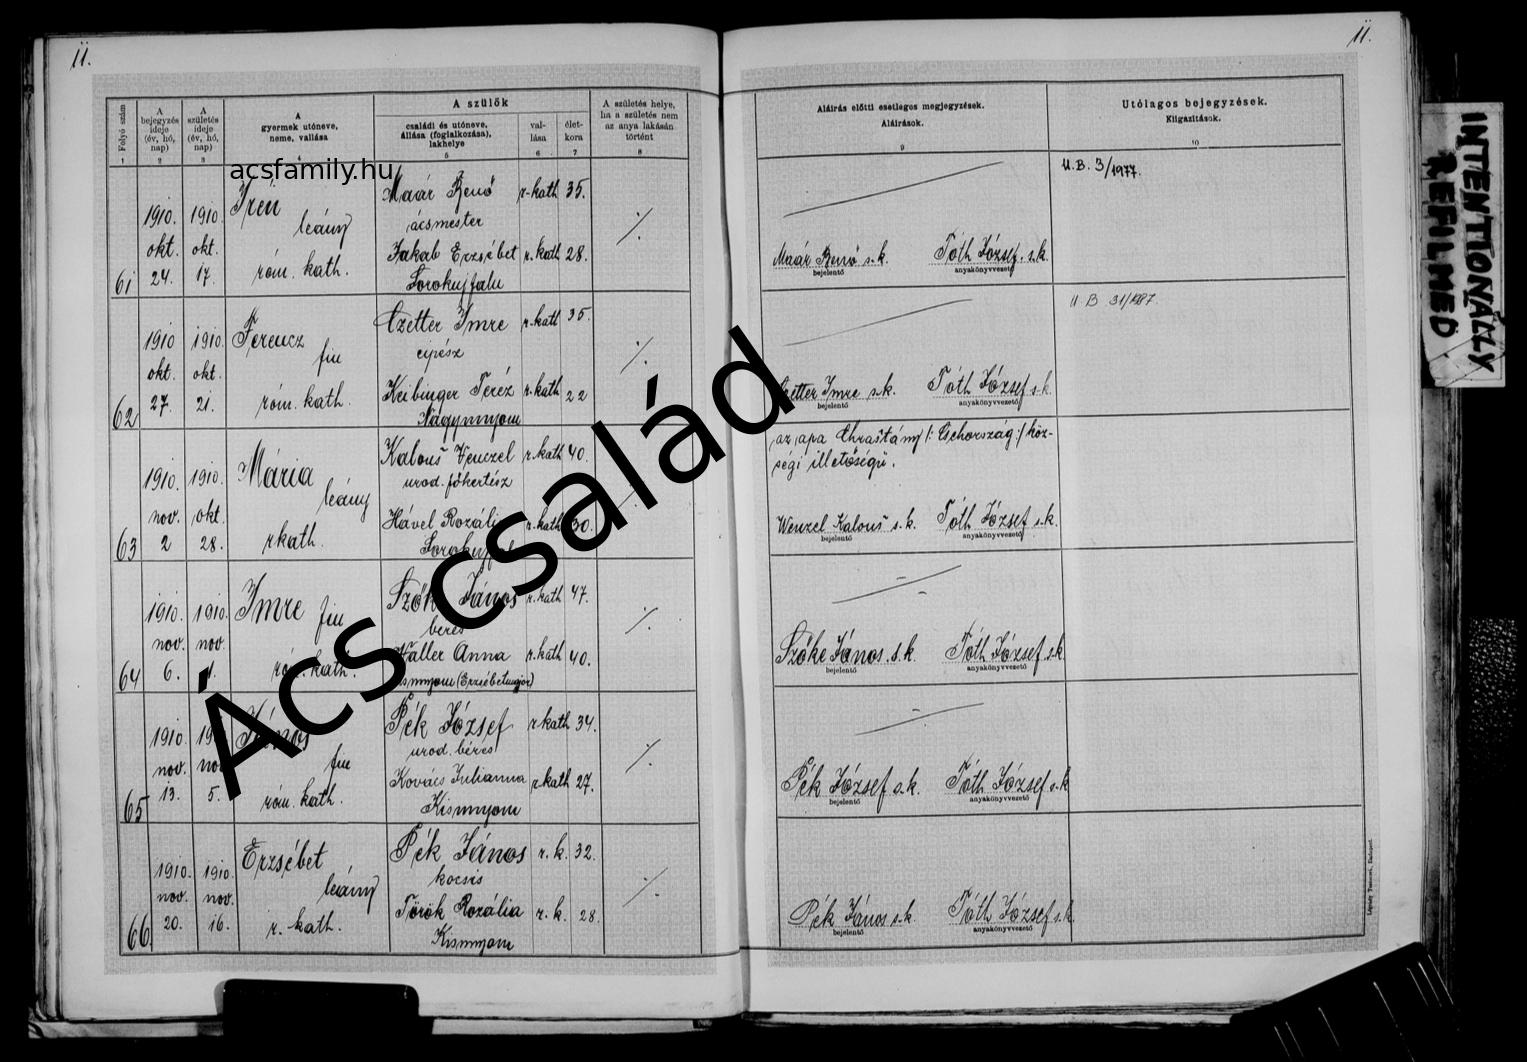 11.
A szülők
Folyó szám
A bejegyzés ideje (év, hó, nap)
A születés ideje (év, hó, nap)
A gyermek utóneve, neme, vallása
családi és utóneve, állása (foglalkozása), lakhelye
vallása
életkora
A születés helye, ha a születés nem az anya lakásán történt
1 2 3 4 5 6 7 8
acsfamily.hu
Irén Maar Benő r. kath 35.
1910. 1910. leány ácsmester
okt. okt. Jakab Erzsébet r. kath 28.
61 24. 17. róm. kath. Sorokujfalu
Czetter Imre r. kath 35.
1910 1910. Ferencz fiu cipész
okt. okt. Teréz r. kath 22
62 27. 21. róm. kath.
Kalouš Venczel r. kath 40.
1910. 1910. Mária leány urod. főkertész
nov. okt. Hável r. kath 30.
63 2 28. rkath.
Szőke János r. kath 47.
1910. 1910. Imre fiu béres
nov. nov. Anna r. kath 40.
64 6. 1. róm. kath.
Pék József r kath 34.
1910. János fiu urod. béres
nov. nov. Kovács Julianna r kath 27.
65 13. 5. róm. kath.
Pék János r. k. 32.
1910. 1910. Erzsébet leány kocsis
nov. nov. Török Rozália r. k. 28.
66 20. 16. r. kath.
Ács család
11.
Aláírás előtti esetleges megjegyzések.
Aláírások.
9
Utólagos bejegyzések.
Kiigazítások.
10
U.B. 3/1977.
Maár Benő s.k. Tóth József s.k.
bejelentő anyakönyvvezető
U B 31/1987.
Czetter Imre s.k. Tóth József s.k.
bejelentő anyakönyvvezető
az apa Chraštány /: Csehország :/ köz-
ségi illetőségű.
Wenzel Kalouš s.k. Tóth József s.k.
bejelentő anyakönyvvezető
Szőke János s.k. Tóth József s.k.
bejelentő anyakönyvvezető
Pék József s.k. Tóth József s.k.
bejelentő anyakönyvvezető
Pék János s.k. Tóth József s.k.
bejelentő anyakönyvvezető
INTENTIONALLY
REFILMED